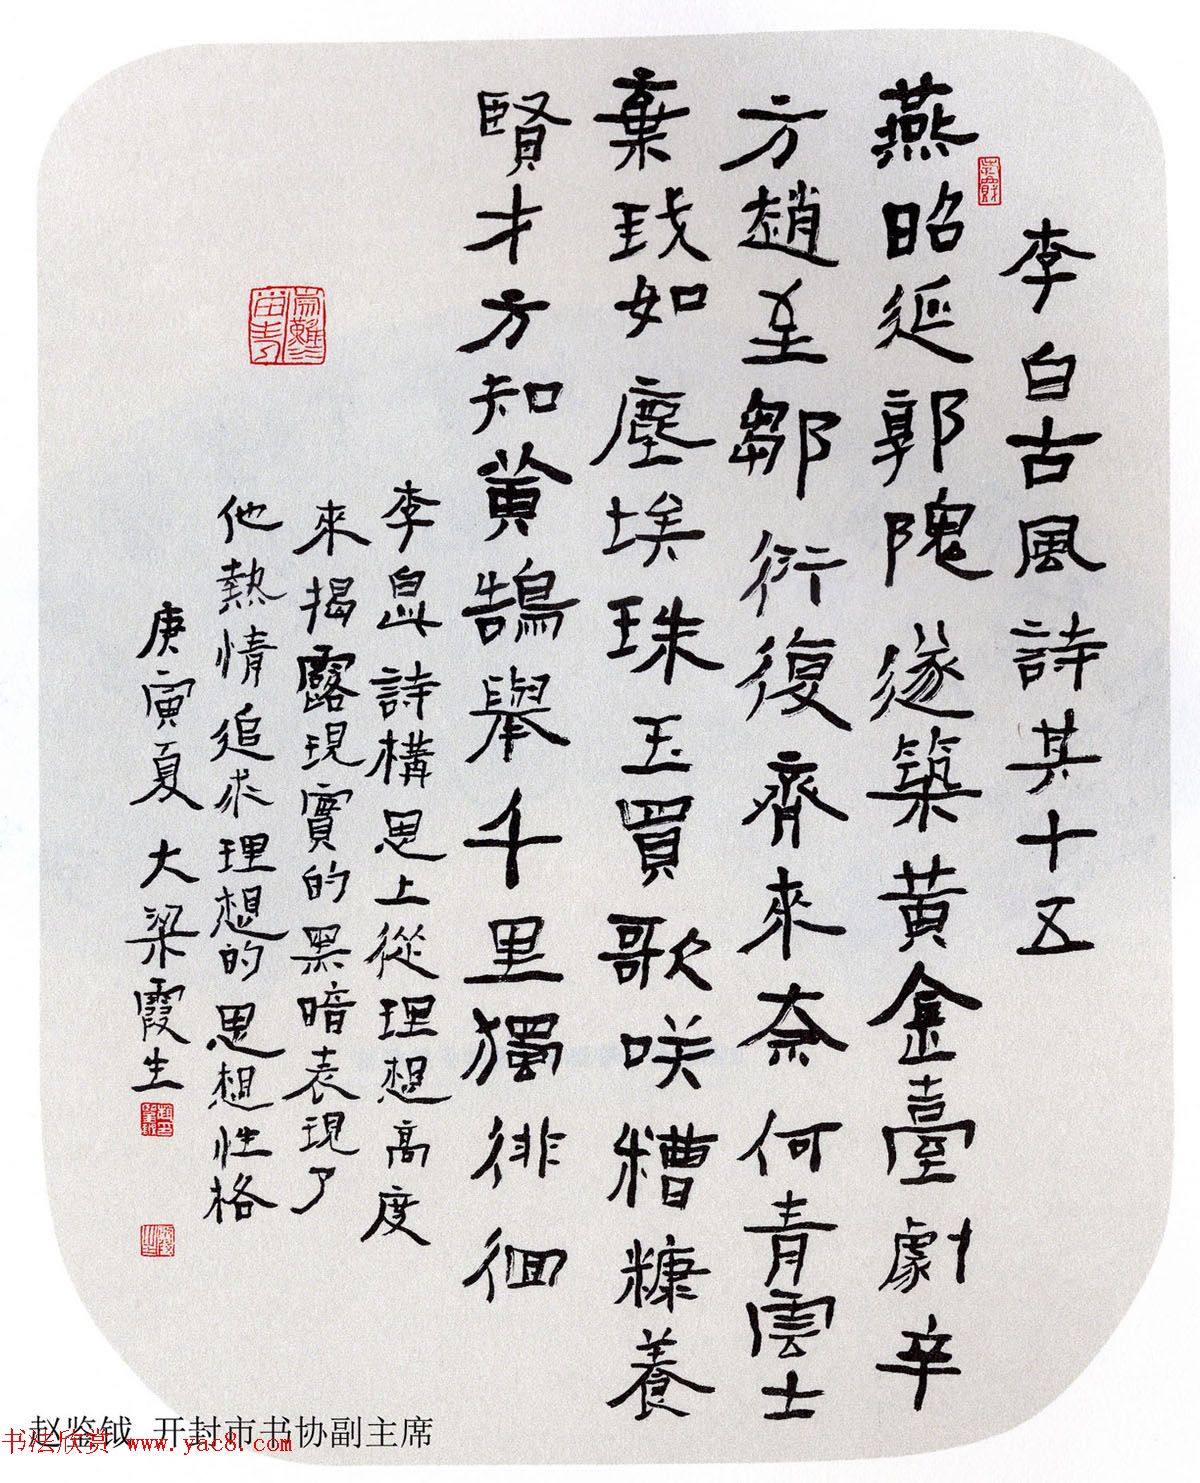 李白古風詩其十五
燕昭延郭隗遂築黄金臺劇辛
方趙至鄒衍復齊來奈何青雲士
棄我如塵埃珠玉買歌咲糟糠養
賢才方知黄鵠舉千里獨徘徊
李白此詩構思上從理想高度
來揭露現實的黑暗表現了
他熱情追求理想的思想性格
庚寅夏大梁霞生
赵鉴钺 开封市书协副主席
书法欣赏 www.yac8.com